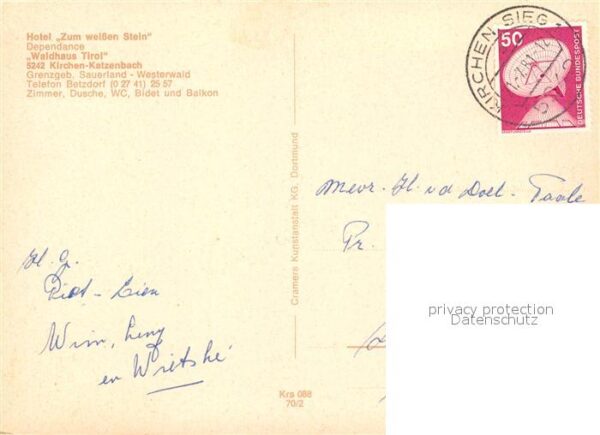 Hotel „Zum weißen Stein"
Dependance
„Waldhaus Tirol"
5242 Kirchen-Katzenbach
Grenzgeb. Sauerland - Westerwald
Telefon Betzdorf (0 27 41) 25 57
Zimmer, Dusche, WC, Bidet und Balkon
KIRCHEN, SIEG 1
50
DEUTSCHE BUNDESPOST
Cramers Kunstanstalt KG. Dortmund
Mevr. H. v d Doel - Taale
Pr.
H. G.
Piet - Lien
Wim, Leny
en Wietské
privacy protection
Datenschutz
Krs 088
70/2